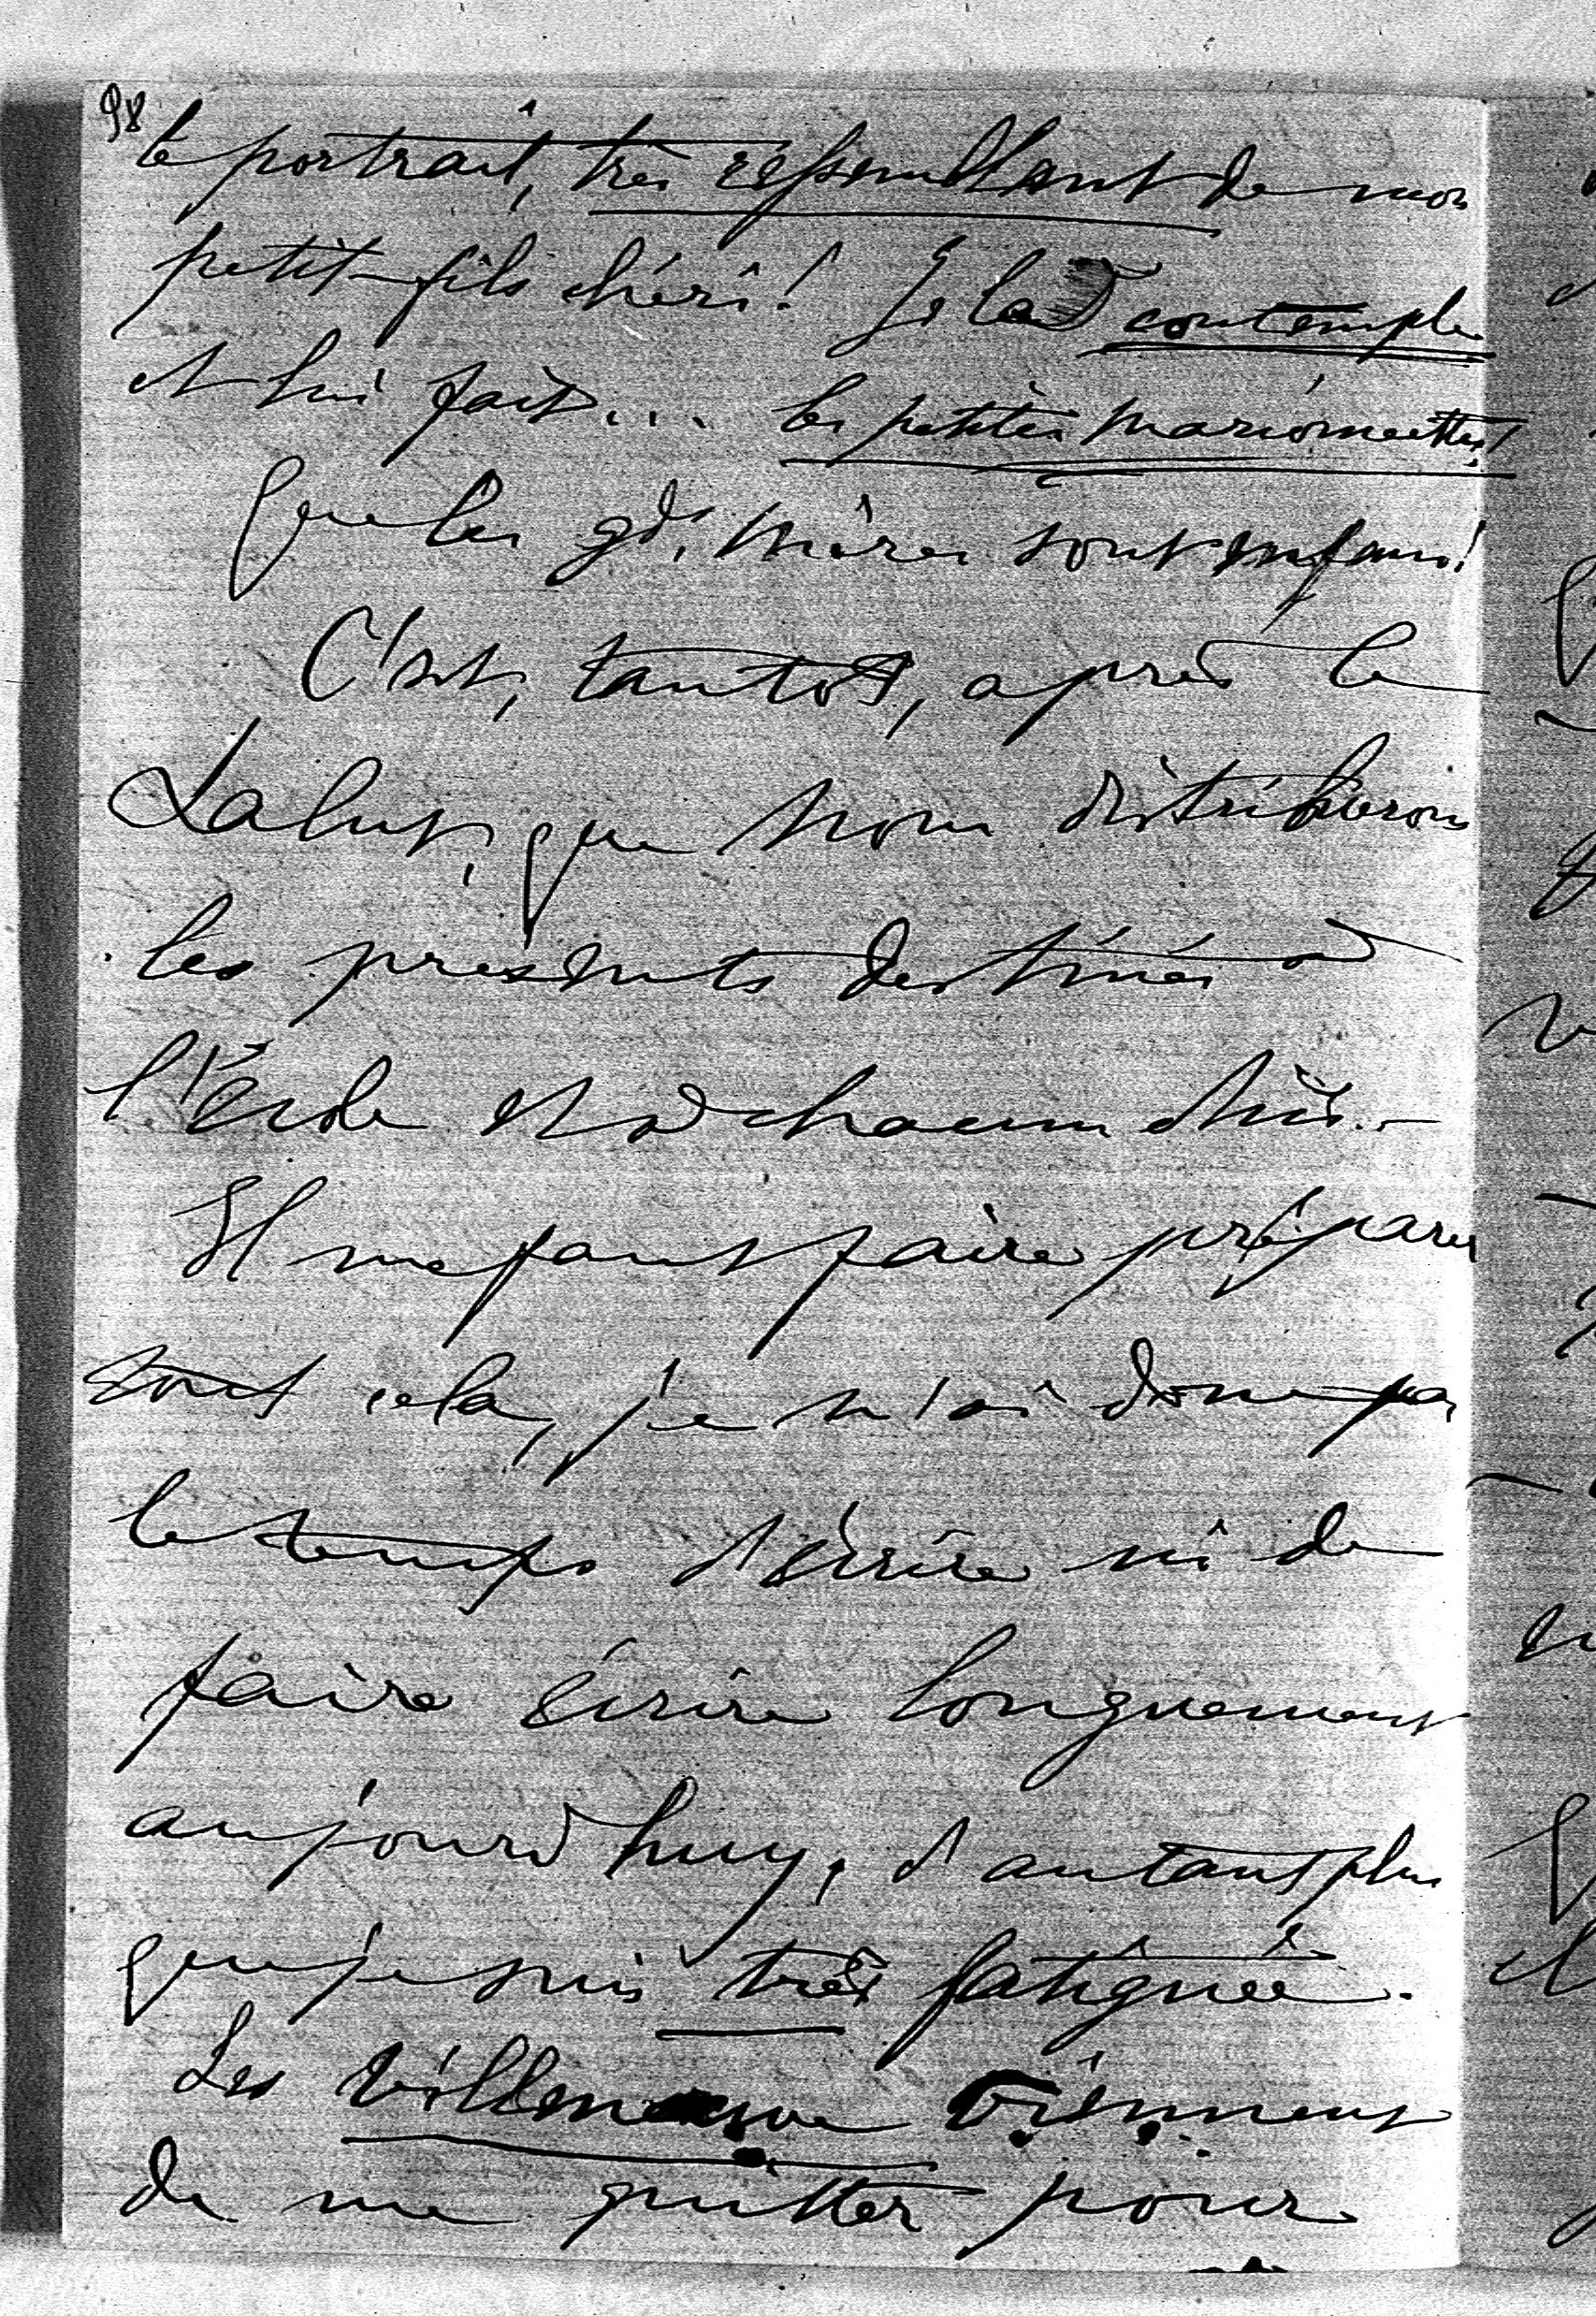 98
le portrait, très ressemblant de mon
petit-fils chéri! Je le contemple
et lui fait... les petites marionnettes!
Que les gds mères sont enfans!
C'est, tantôt, après le
Salut, que nous distribuerons
les présents destinés à
l'École et à chacun d'eux.-
Il me faut faire préparer
tout cela, je n'ai donc pas
le temps d'écrire ni de
faire écrire longuement
aujourd'huy, d'autant plus
que je suis très fatiguée.
Les viennent
de me quitter pour